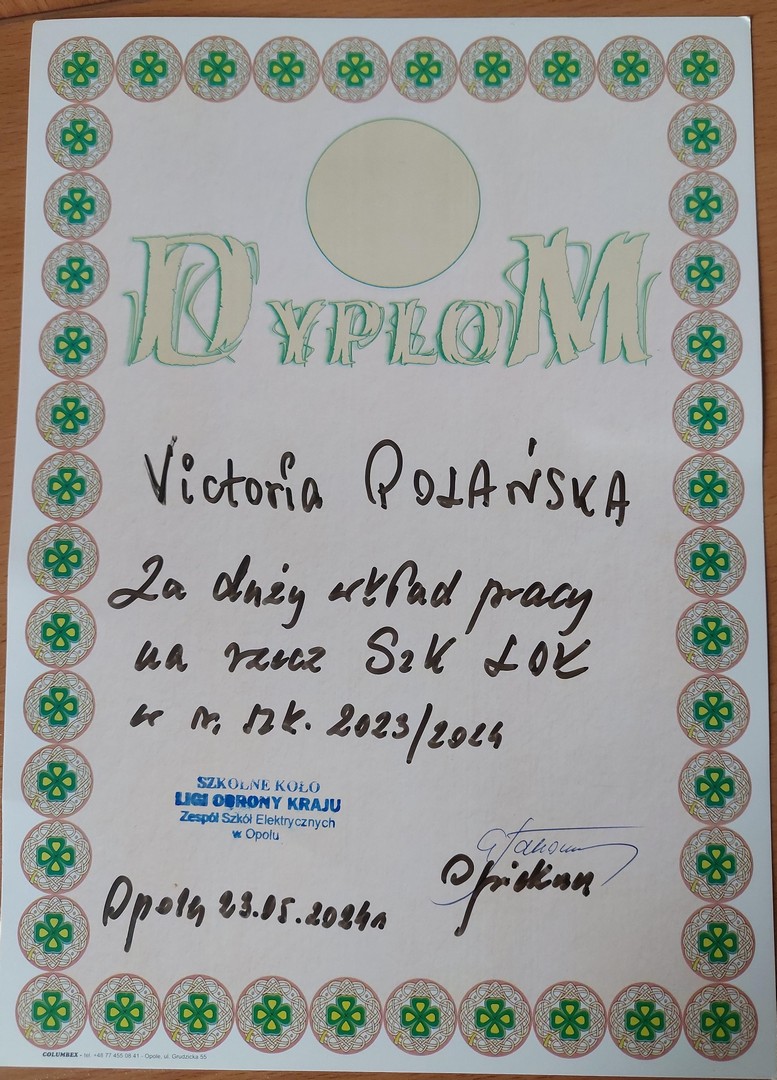 DYPLOM
Victoria POLAŃSKA
Za duży wkład pracy
na rzecz Szk LOK
w r. szk. 2023/2024
SZKOLNE KOŁO
LIGI OBRONY KRAJU
Zespół Szkół Elektrycznych
w Opolu
Opiekun
Opole 23.05.2024r
COLUMBEX - tel. +48 77 455 98 41 - Opole, ul. Grudzicka 55